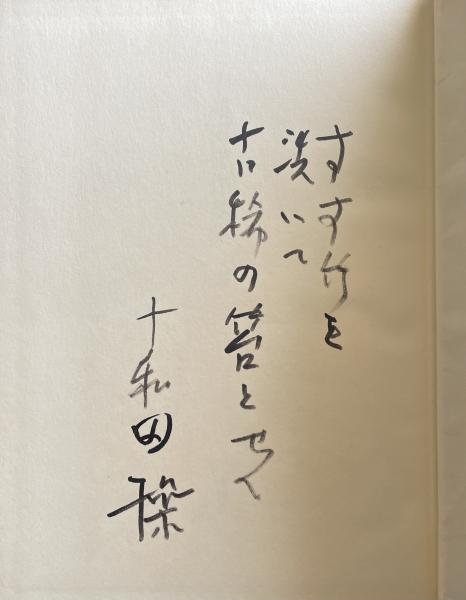 すす竹を
洗いて
古稀の箸とせん
十和田操